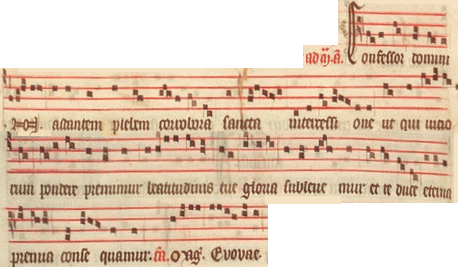 ad M. a. Confessor domini
astantem plebem corrobora sancta intercessi one ut qui uicio
rum pondere premimur beatitudinis tue gloria subleue mur et te duce eterna
premia conse quamur. Mag. Evovae.